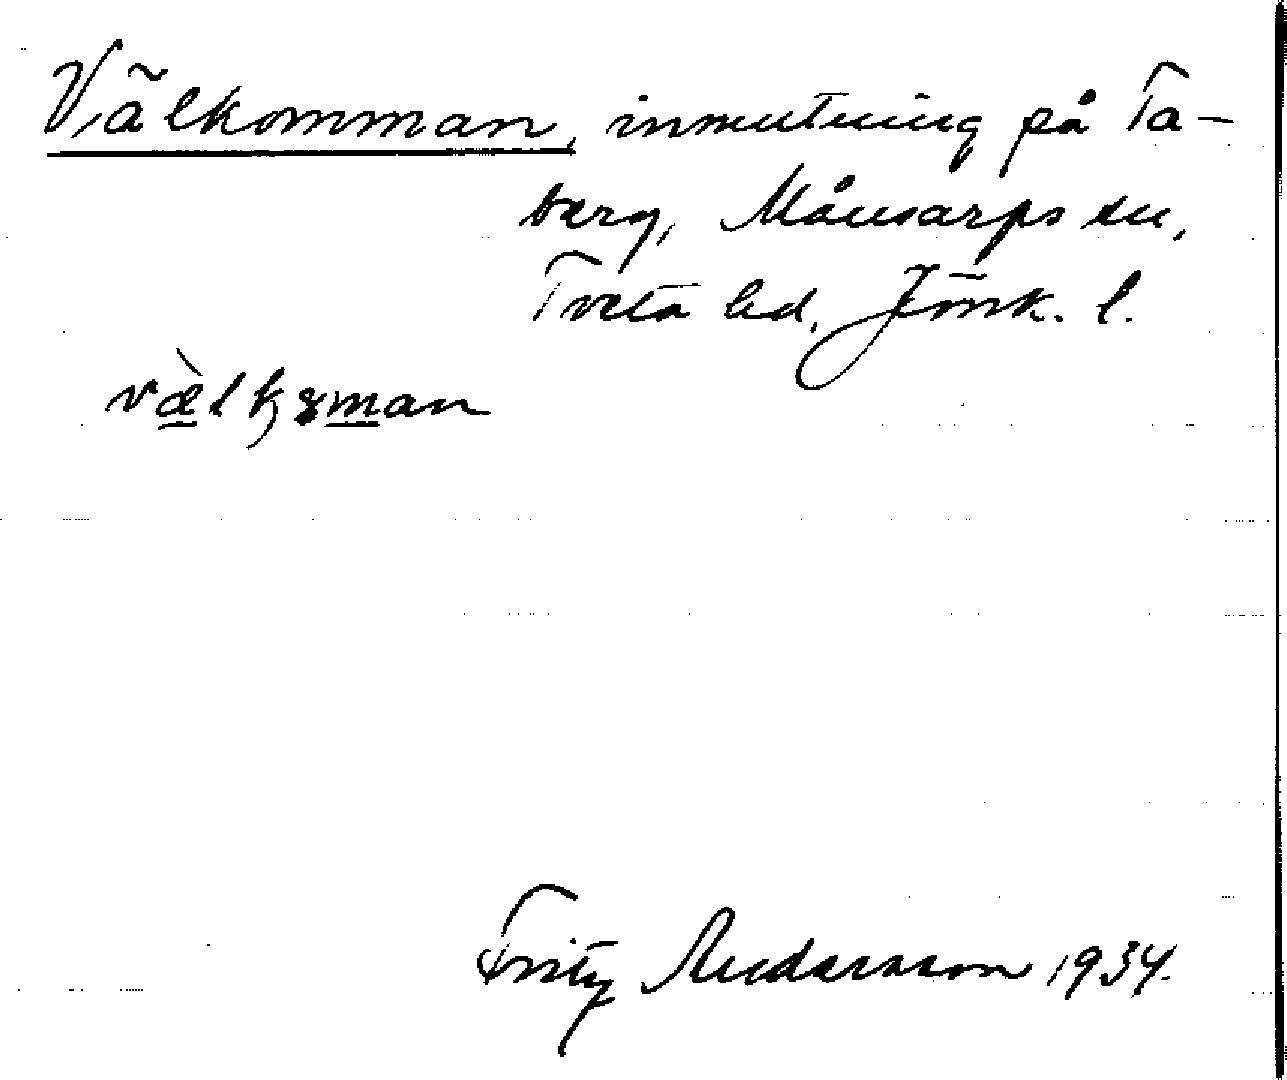 Välkomman, inmutning på Ta-
berg, Månsarps sn,
Tveta hd, Jönk. l.
Fritz Andersson 1934.